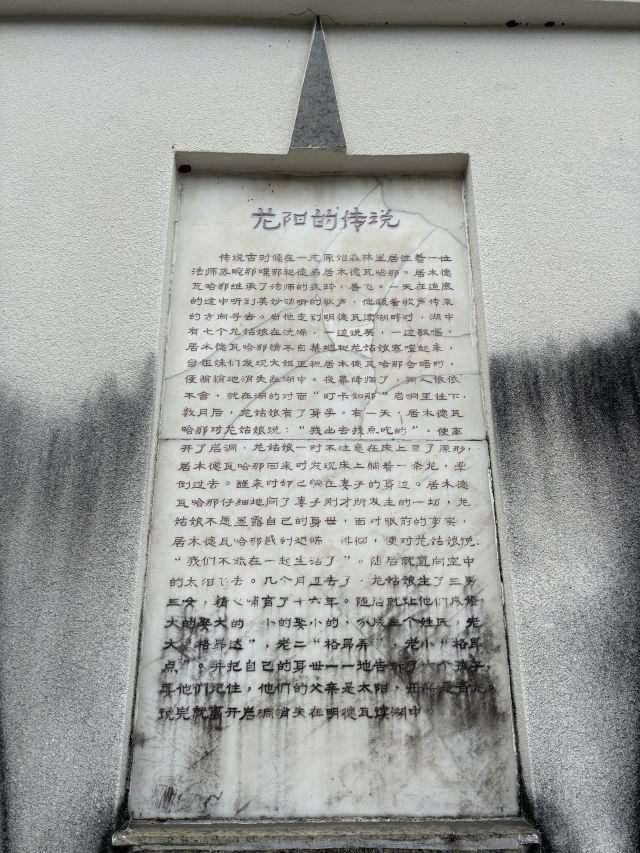 龙阳的传说
传说古时候在一片原始森林里居住着一位
法师苏畹那喋那和徒弟居木德瓦哈那。居木德
瓦哈那继承了法师的衣钵，善飞。一天在巡底
的途中听到美妙动听的歌声，他顺着歌声传来
的方向寻去。当他走到明德瓦湖畔时，湖中
有七个龙姑娘在洗澡，一边说笑，一边歌唱。
居木德瓦哈那情不自禁地和龙姑娘寒喧起来，
当姐妹们发现大姐正和居木德瓦哈那会唔时，
便悄悄地消失在湖中。夜幕降临了，俩人依依
不舍，就在湖的对面“叮卡如那”岩洞里住下，
数月后，龙姑娘有了身孕。有一天，居木德瓦
哈那对龙姑娘说：“我出去找点吃的”。便离
开了岩洞，龙姑娘一时不注意在床上显了原形，
居木德瓦哈那回来时发现床上躺着一条龙，晕
倒过去。醒来时却已躺在妻子的身边。居木德
瓦哈那仔细地问了妻子刚才所发生的一切，龙
姑娘不愿显露自己的身世，面对眼前的事实，
居木德瓦哈那感到恐怖、徘徊，便对龙姑娘说：
“我们不能在一起生活了”。随后就直向空中
的太阳飞去。几个月过去了，龙姑娘生了三男
三女，精心哺育了十六年。随后就让他们成婚，
大的娶大的 小的娶小的，分成三个姓氏，老
大“格昂达”，老二“格昂弄”，老小“格昂
点”。并把自己的身世一一地告诉了六个孩子，
要他们记住，他们的父亲是太阳，母亲是青龙。
说完就离开岩洞消失在明德瓦湖中。